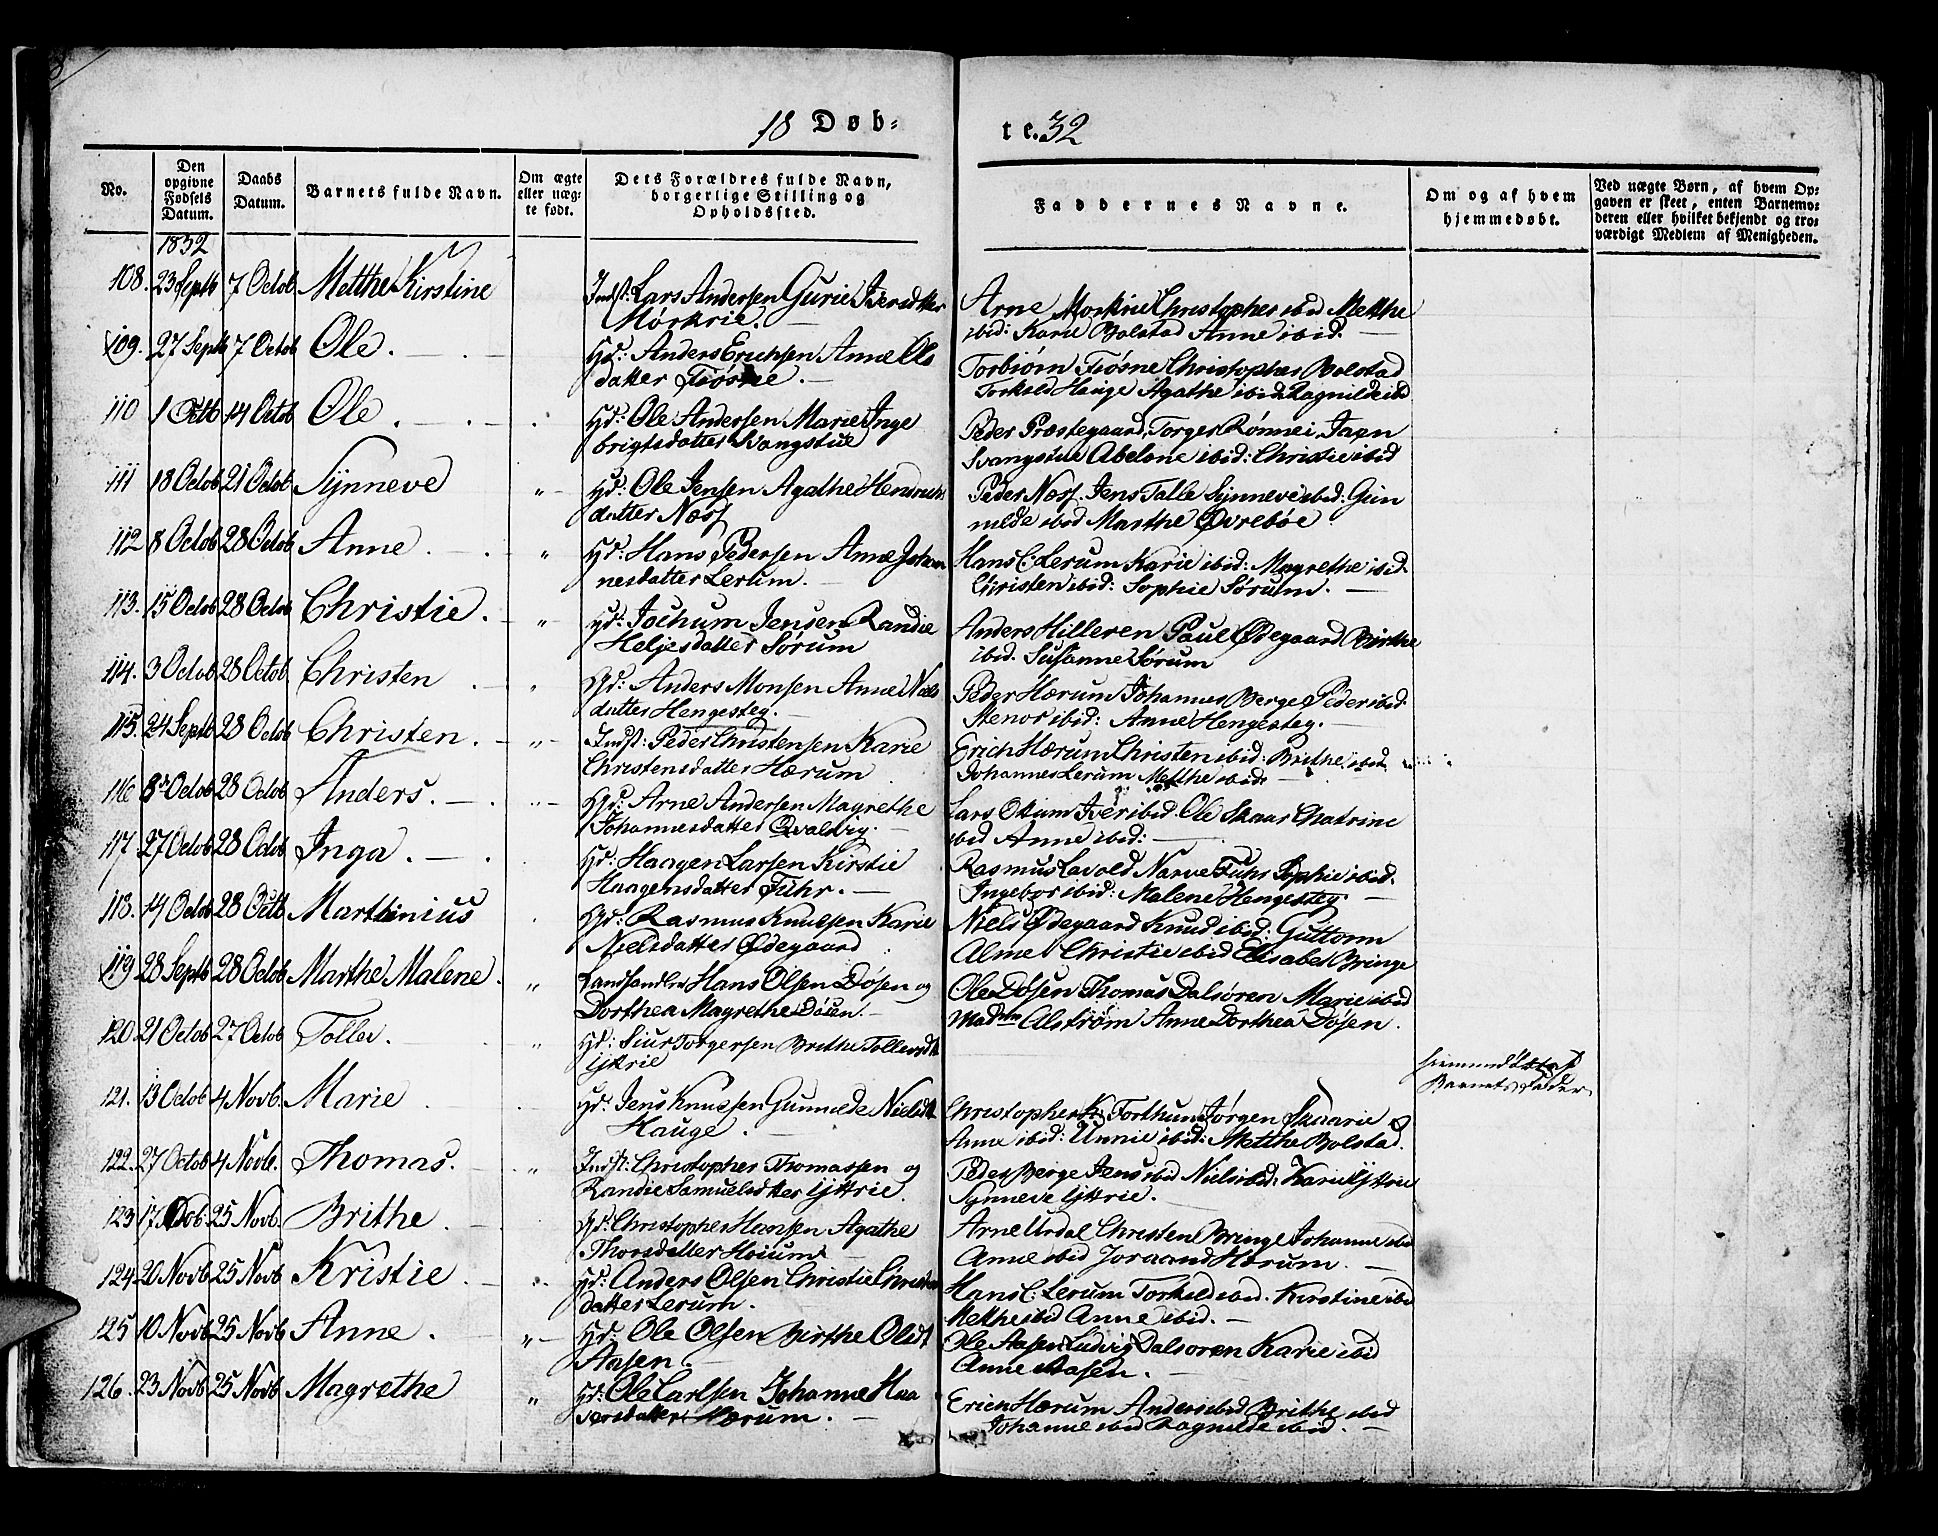 18 Døb-
te. 32
No.
Den opgivne Fødsels Datum.
Daabs Datum.
Barnets fulde Navn.
Om ægte eller uægte født.
Dets Forældres fulde Navn, borgerlige Stilling og Opholdssted.
Faddernes Navne.
Om og af hvem hjemmedøbt.
Ved uægte Børn, af hvem Opgaven er skeet, enten Barnemoderen eller hvilket bekjendt og troværdigt Medlem af Menigheden.
1832
108. 23 Septb 7 Octob Metthe Kirstine Indst: Lars Andersen Gurie Iversdtter
Mørkrie.
Arne Mørkrie Christopher ibid Metthe
ibid: Karie Bolstad Anne ibid.
109. 27 Septb 7 Octob Ole. Hd: Anders Erichsen Anne Ols
datter Fiøsne.
Torbiørn Fiøsne Christopher Bolstad
Torkeld Hauge Agathe ibid Ragnilde ibid
110 1 Octb 14 Octob Ole. Hd: Ole Andersen Marie Inge
brigtsdatter Svangstue
Peder Præstegaard, Torger Rønnei, Jaen
Svangstue Abelone ibid: Christie ibid
111 18 Octob 21 Octob Synneve „ Hd: Ole Jensen Agathe Hendrichs
datter Næss
Peder Næss. Jens Talle Synneve ibid: Gun
nilde ibid Marthe Øvrebøe
112 8 Octob 28 Octob Anne. „ Hd: Hans Pedersen Anne Johan
nesdatter Lerum.
Hans C: Lerum Karie ibid: Magrethe ibid.
Christen ibid: Sophie Sørum.
113. 15 Octob 28 Octob Christie. „ Hd: Jochum Jensen Randie
Heljesdatter Sørum
Anders Hilleren Paul Ødegaard Birthe
ibid. Susanne Sørum
114. 3 Octob 28 Octob. Christen „ Hd: Anders Monsen Anne Niels
datter Hengesteg.
Peder Hærum Johannes Berge Peder ibid.
Stenor ibid: Anne Hengesteg.
115. 24 Septb 28 Octob Christen. „ Indst: Peder Christensen Karie
Christensdatter Hærum
Erich Hærum Christen ibid: Brithe ibid
Johannes Lerum Metthe ibid:
116 8de Octob 28 Octob Anders. „ Hd: Arne Andersen Magrethe
Johannesdatter Qvalvig.
Lars Okum Iver ibid. Ole Skaar Chatrine
ibid Anne ibid:
117. 27 Octob 28 Octob Inga. Hd: Haagen Larsen Kirstie
Haagensdatter Fuhr.
Rasmus Lavold Narve Fuhr Sophie ibid.
Ingebor ibid: Malene Hengesteg.
118. 14 Octob 28 Octb. Marthinius Hd: Rasmus Knudsen Karie
Nielsdatter Ødegaard
Niels Ødegaard Knud ibid: Guttorm
Alme Christie ibid Elisabet Bringe
119 28 Septb 28 Octob Marthe Malene. „ Landhandler Hans Olsen Døsen og
Dorthea Magrethe Døsen.
Ole Døsen Thomas Dalsøren Marie ibid
Madm Alstrøm Anne Dorthea Døsen.
120 21 Octob 27 Octob Tollev. „ Hd: Siur Torgersen Brithe Tollevsdt
Yttrie
Hiemmedøbt af
Barnets Fader.
121. 13 Octob 4 Novb. Marie. Hd: Jens Knudsen Gunnilde Nielsdt
Hauge.
Christopher K: Forthun Jørgen Skaarie
Anne ibid: Unnie ibid: Metthe Bolstad.
122. 27 Octob 4 Novb. Thomas. „ Indst: Christopher Thomassen og
Randie Samuelsdtter Yttrie.
Peder Berge Jens ibid Niels ibid: Karie Yttrie
Synneve Yttrie.
123 17 Octob. 25 Novb. Brithe. Hd: Christopher Hansen Agathe
Thorsdatter Hoium
Arne Urdal Christen Bringe Johanne ibid
Anne ibid Joraand Hærum.
124 20 Novb. 25 Novb Kristie. „ Hd: Anders Olsen Christie Christens
datter Lerum.
Hans C: Lerum Torkeld ibid. Kirstine ibid
Metthe ibid Anne ibid.
125 10 Novb 25 Novb Anne. „ Hd: Ole Olsen Birthe Olsdt
Aasen.
Ole Aasen Ludvig Dalsøren Karie ibid
Anne Aasen.
126. 23 Novb 25 Novb Magrethe „ Hd: Ole Carlsen Johanne Haa
versdatter Hærum.
Erich Hærum Anders ibid Brithe ibid
Johanne ibid Ragnilde ibid.